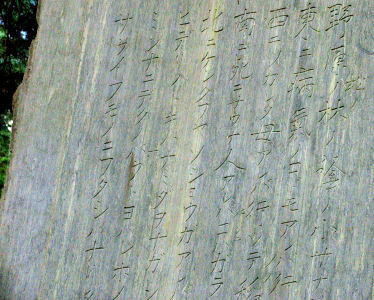 野原ノ松ノ林ノ蔭ノ小サナ
東ニ病気ノコドモアレバ
西ニツカレタ母アレバ行ッテソノ稲
南ニ死ニサウナ人アレバ コハガラ
北ニケンクヮヤソショウガアレ
ヒデリノトキハナミダヲナガシ
ミンナニデクノボートヨバレ
サウイフモノニワタシハナリタ